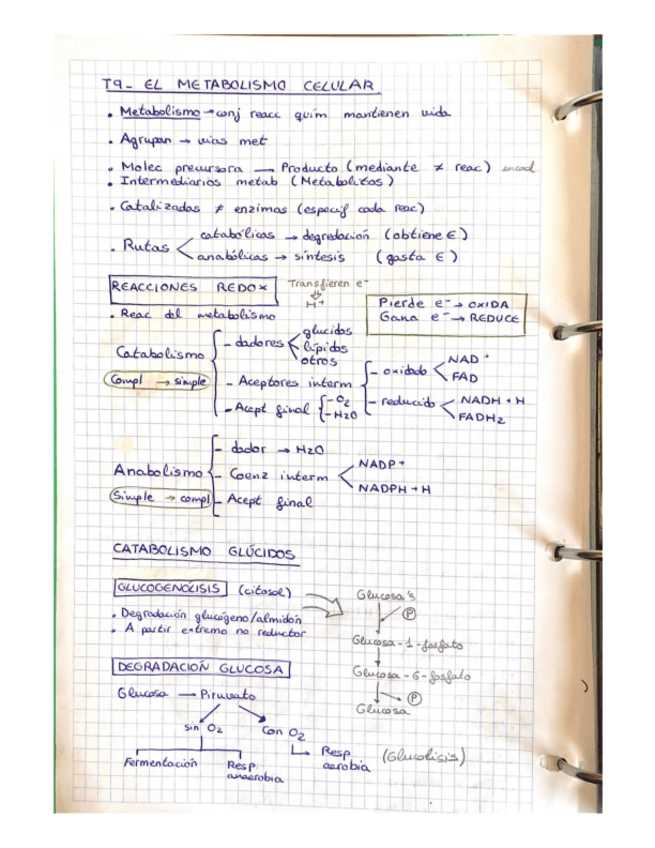 T9- EL METABOLISMO CELULAR
• Metabolismo → conj reacc quím mantienen vida
• Agrupan → vías met
• Molec precursora — Producto (mediante ≠ reac)
• Intermediarios metab (Metabolitos)
• Catalizadas ≠ enzimas (especif cada reac)
• Rutas
catabólicas → degradación (obtiene E)
anabólicas → síntesis (gasta E)
REACCIONES REDOX
Transfieren e-
H+
Pierde e- → OXIDA
Gana e- → REDUCE
• Reac del metabolismo
Catabolismo
Compl → simple
- dadores
glucidos
lípidos
otros
- Aceptores interm
- oxidado
NAD+
FAD
- reducido
NADH + H
FADH2
- Acept final
- O2
- H2O
Anabolismo
Simple → compl
- dador → H2O
- Coenz interm
NADP+
NADPH + H
- Acept final
CATABOLISMO GLÚCIDOS
GLUCOGENÓLISIS (citosol)
• Degradación glucógeno/almidón
• A partir extremo no reductor
Glucosa's
P
Glucosa-1-fosfato
Glucosa-6-fosfato
P
Glucosa
DEGRADACIÓN GLUCOSA
Glucosa → Piruvato
sin O2
Con O2
Fermentación
Resp. anaerobia
Resp aerobia
(Glucolisis)